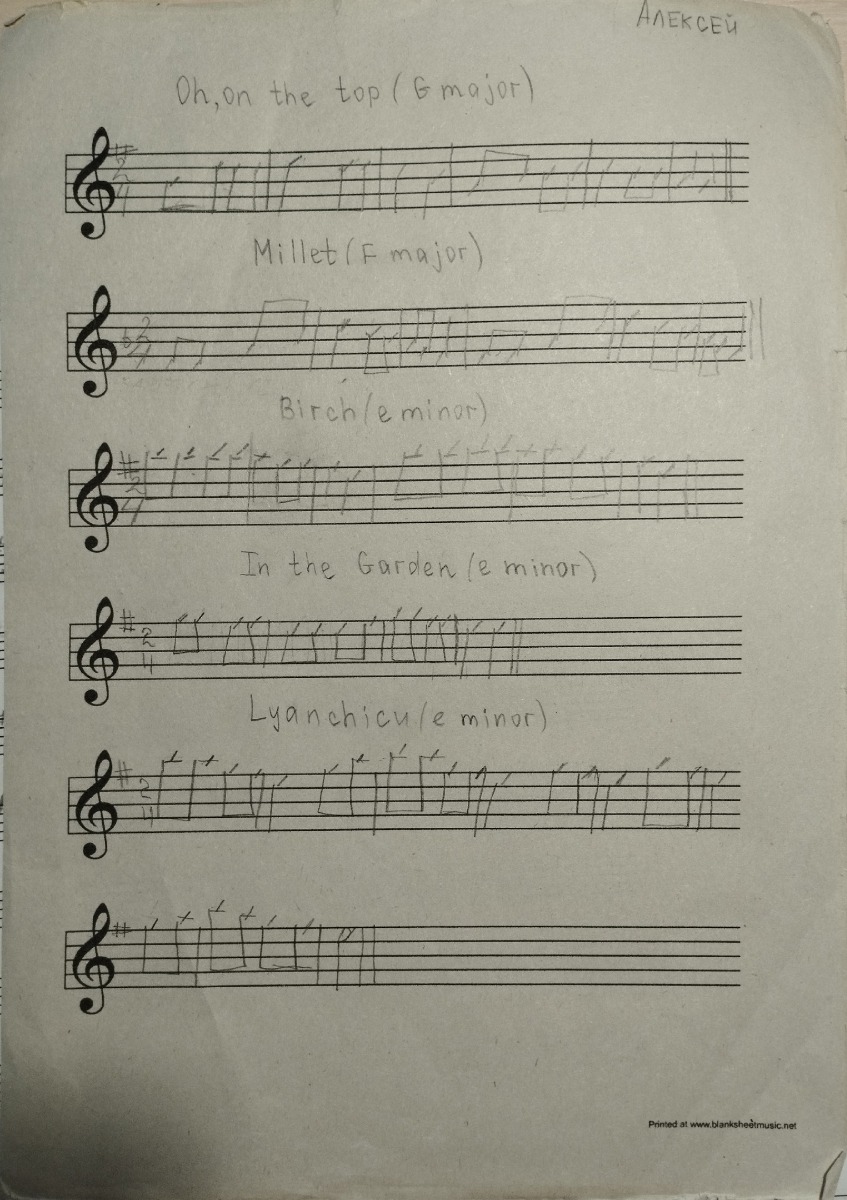 АЛЕКСЕЙ
Oh, on the top (G major)
2
4
Millet (F major)
2
4
Birch (e minor)
2
4
In the Garden (e minor)
2
4
Lyanchicu (e minor)
2
4
Printed at www.blanksheetmusic.net